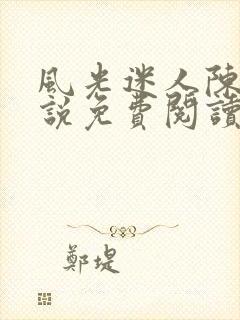 風光迷人陳
說免費閱讀
鄭堤